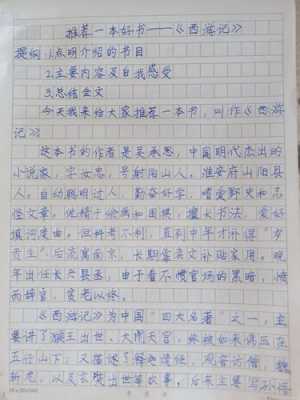 推荐一本好书——《西游记》
提纲：1.点明介绍的书目
2.主要内容及自我感受
3.总结全文
今天我来给大家推荐一本书，叫作《西游
记》。
这本书的作者是吴承恩，中国明代杰出的
小说家，字汝忠，号射阳山人，淮安府山阳县
人。自幼聪明过人，勤奋好学，喜爱野史和志
怪文章。他精于绘画和围棋，擅长书法，爱好
填词度曲。但科考不利，直到中年才补得“岁
贡生”。后寓居南京，长期靠卖文补贴家用。晚
年出任长兴县丞，由于看不惯官场的黑暗，愤
而辞官，贫老以终。
《西游记》为中国“四大名著”之一，主
要讲了猴王出世、大闹天宫，然被如来佛压在
五行山下；又描述了释迦